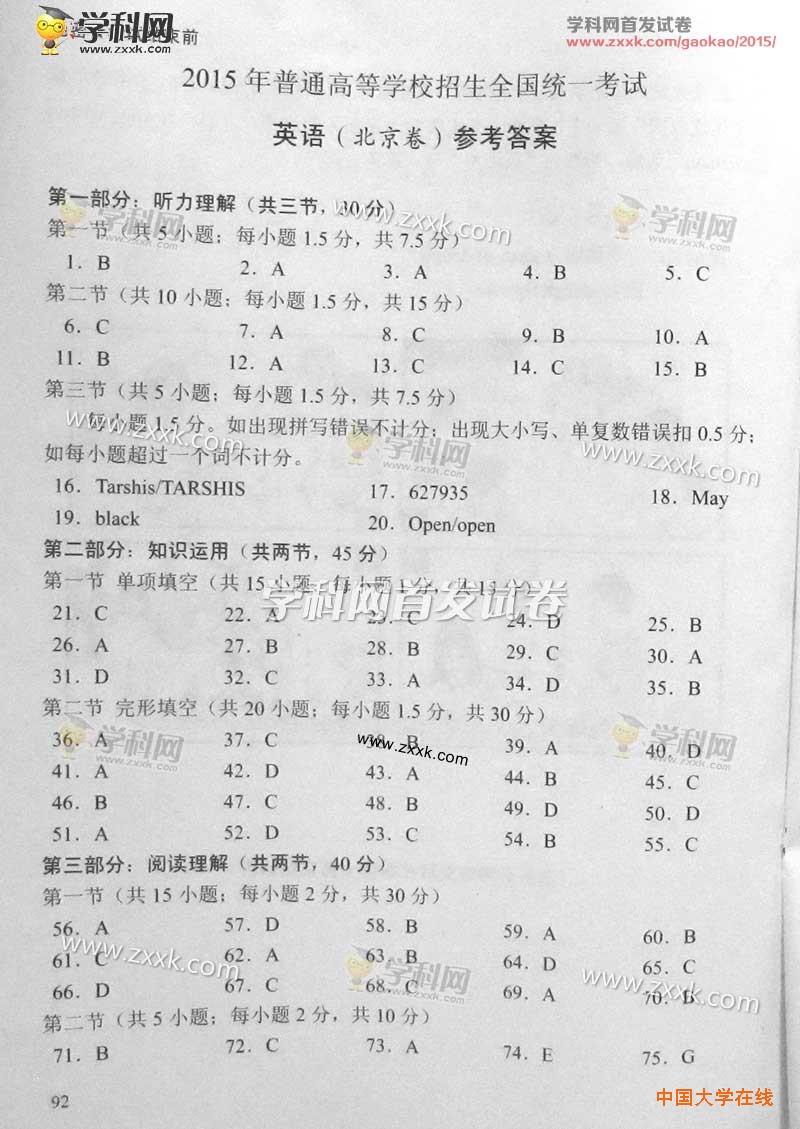 学科网
www.zxxk.com
束前
学科网首发试卷
www.zxxk.com/gaokao/2015/
2015 年普通高等学校招生全国统一考试
英语（北京卷）参考答案
第一部分：听力理解（共三节，30 分）
第一节（共 5 小题；每小题 1.5 分，共 7.5 分）
1. B 2. A 3. A 4. B 5. C
第二节（共 10 小题；每小题 1.5 分，共 15 分）
6. C 7. A 8. C 9. B 10. A
11. B 12. A 13. C 14. C 15. B
第三节（共 5 小题；每小题 1.5 分，共 7.5 分）
每小题 1.5 分。如出现拼写错误不计分；出现大小写、单复数错误扣 0.5 分；
如每小题超过一个词不计分。
16. Tarshis/TARSHIS 17. 627935 18. May
19. black 20. Open/open
第二部分：知识运用（共两节，45 分）
第一节 单项填空（共 15 小题；每小题 1 分，共 15 分）
学科网首发试卷
21. C 22. A 23. C 24. D 25. B
26. A 27. B 28. B 29. C 30. A
31. D 32. C 33. A 34. D 35. B
第二节 完形填空（共 20 小题；每小题 1.5 分，共 30 分）
36. A 37. C 38. B 39. A 40. D
www.zxxk.com
41. A 42. D 43. A 44. B 45. C
46. B 47. C 48. B 49. D 50. D
51. A 52. D 53. C 54. B 55. C
第三部分：阅读理解（共两节，40 分）
第一节（共 15 小题；每小题 2 分，共 30 分）
56. A 57. D 58. B 59. A 60. B
61. C 62. A 63. B 64. D 65. C
66. D 67. C 68. C 69. A 70. D
第二节（共 5 小题；每小题 2 分，共 10 分）
71. B 72. C 73. A 74. E 75. G
92
中国大学在线